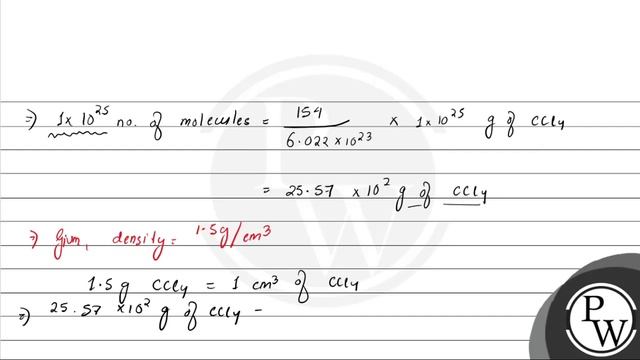 ⇒ 1 × 10²⁵ no. of molecules = 154 / 6.022 × 10²³ × 1 × 10²⁵ g of CCl4
= 25.57 × 10² g of CCl4
⇒ Given, density = 1.5g/cm³
1.5 g CCl4 = 1 cm³ of CCl4
⇒ 25.57 × 10² g of CCl4 =
P
W